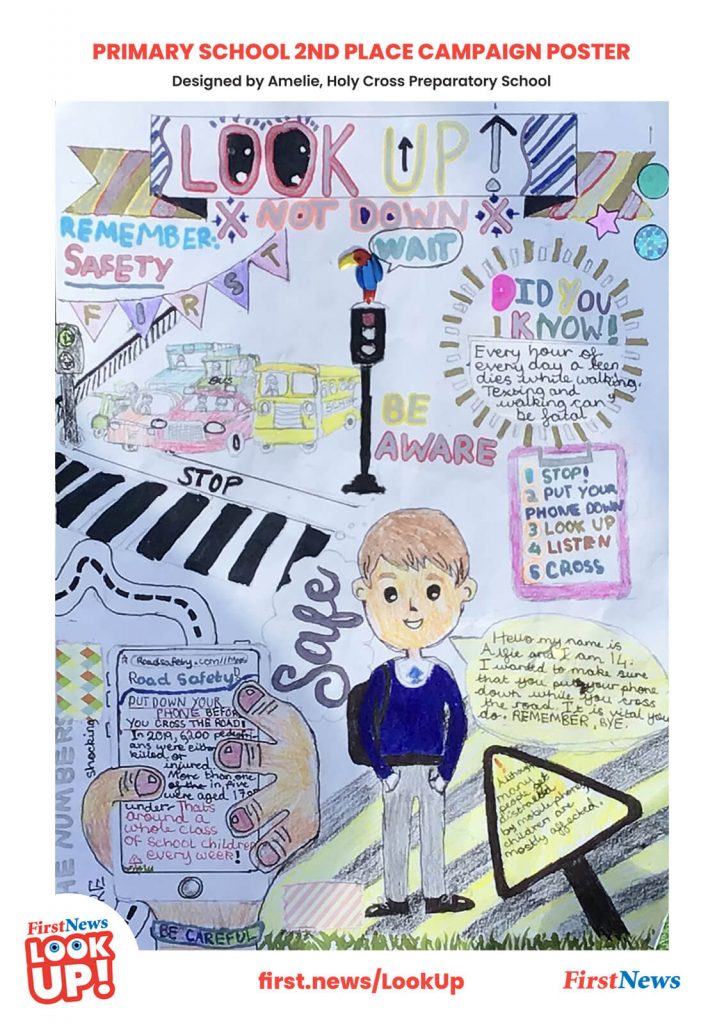 PRIMARY SCHOOL 2ND PLACE CAMPAIGN POSTER
Designed by Amelie, Holy Cross Preparatory School
LOOK UP!
NOT DOWN
REMEMBER:
SAFETY
FIRST
WAIT
DID YOU
KNOW!
Every hour of
every day a teen
dies while walking.
Texting and
walking can
be fatal
BUS
BE
AWARE
STOP
1 STOP!
2 PUT YOUR
PHONE DOWN
3 LOOK UP
4 LISTEN
5 CROSS
Safe
Hello my name is
Alfie and I am 14.
I wanted to make sure
that you put your phone
down while you cross
the road. It is vital you
do. REMEMBER, BYE.
Road Safety!
PUT DOWN YOUR
PHONE BEFOR
YOU CROSS THE ROAD!
In 2019, 6200 pedestri-
ans were either
killed or
injured.
More than one
of the in five
were aged 17
under. Thats
around a
whole class
of school children
every week!
shocking
THE NUMBERS
many
people get
distracted
by mobile phones
children are
mostly affected.
BE CAREFUL
FirstNews
LOOK
UP!
first.news/LookUp
FirstNews